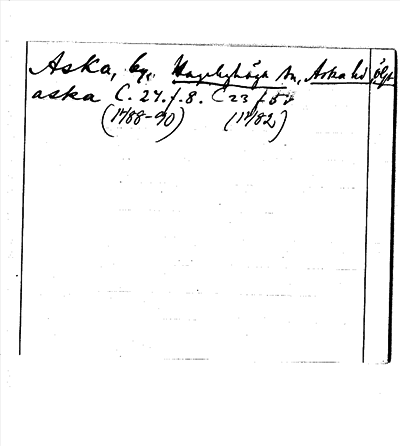 Aska, by, Hagebyhöga sn, Aska hd, Ög
aska C. 24. f. 8. C 23 f
(1488-90) (1482)